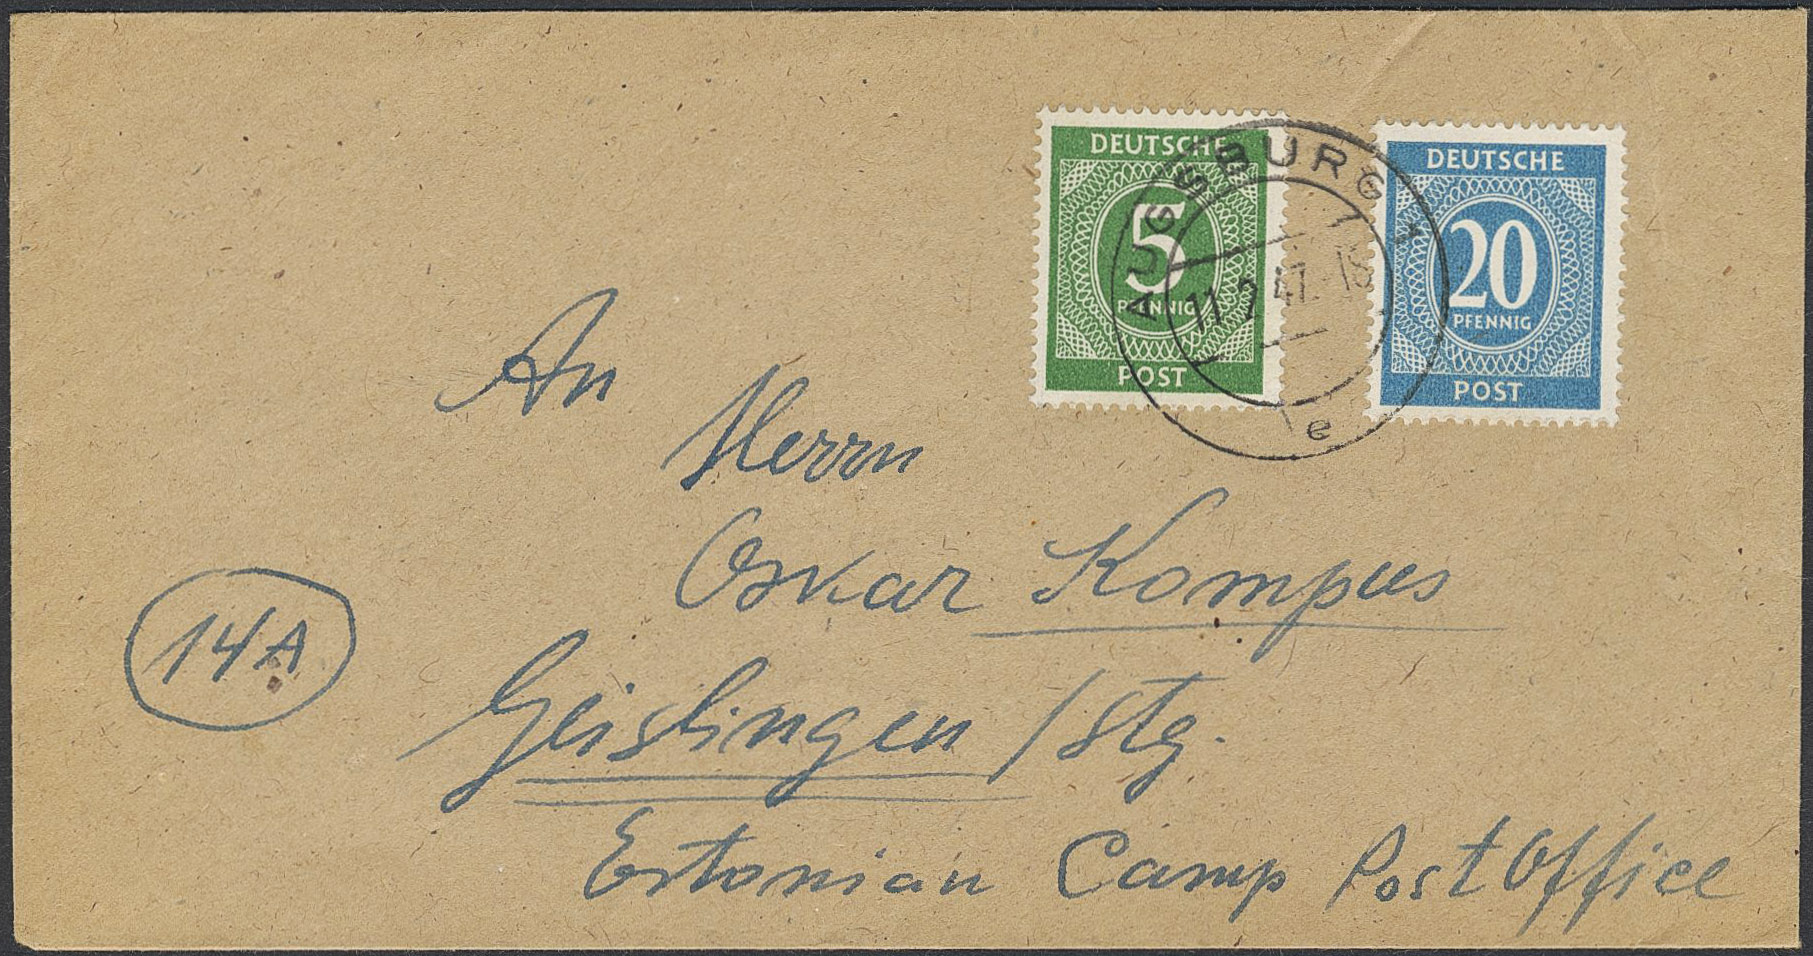 DEUTSCHE
5
PFENNIG
POST
DEUTSCHE
20
PFENNIG
POST
AUGSBURG 1
11.2.47.-18
e
An
Herrn
Oskar Kompus
14A
Geislingen /Stg.
Estonian Camp Post Office